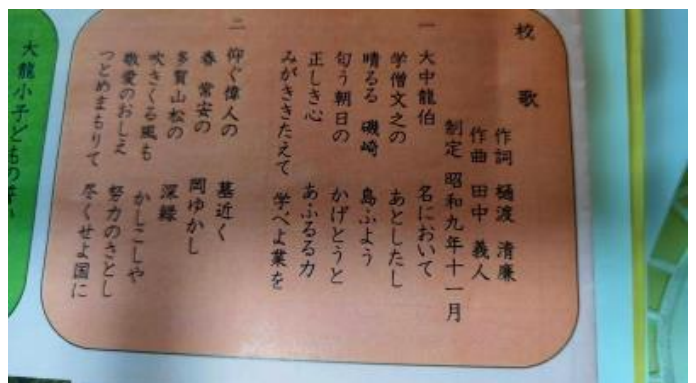 校歌
作詞 樋渡 清廉
作曲 田中 義人
制定 昭和九年十一月
一 大中龍伯 名において
学僧文之の あとしたし
晴るる 磯崎 島ふよう
匂う朝日の かげとうと
正しき心 あふるる力
みがききたえて 学べよ業を
二 仰ぐ偉人の 墓近く
春 常安の 岡ゆかし
多賀山松の 深緑
吹きくる風も かしこしや
敬愛のおしえ 努力のさとし
つとめまもりて 尽くせよ国に
大龍小子どもの